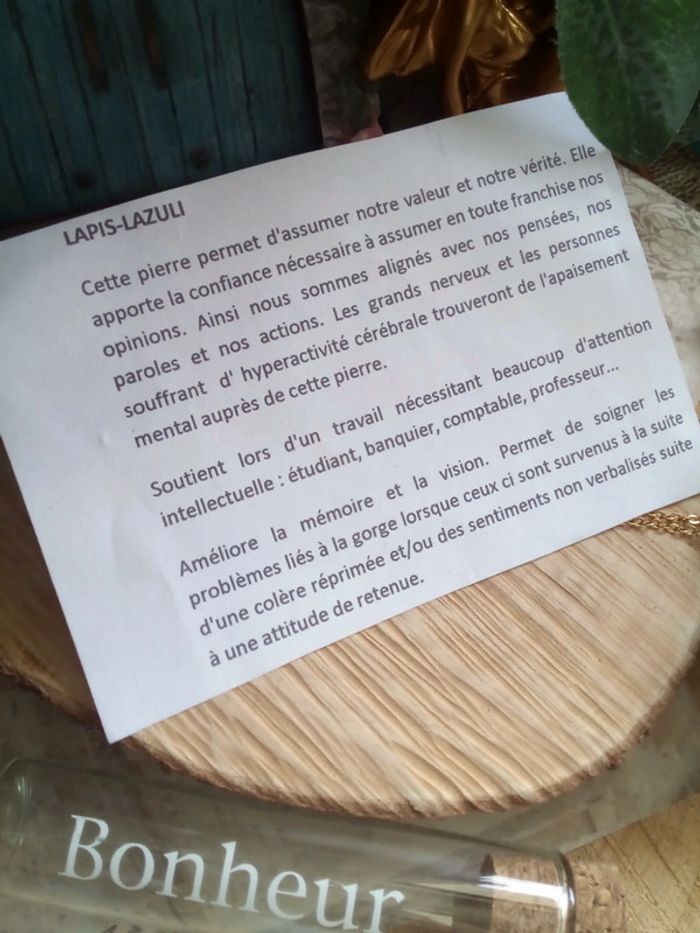 LAPIS-LAZULI
Cette pierre permet d'assumer notre valeur et notre vérité. Elle
apporte la confiance nécessaire à assumer en toute franchise nos
opinions. Ainsi nous sommes alignés avec nos pensées, nos
paroles et nos actions. Les grands nerveux et les personnes
souffrant d' hyperactivité cérébrale trouveront de l'apaisement
mental auprès de cette pierre.
Soutient lors d'un travail nécessitant beaucoup d'attention
intellectuelle : étudiant, banquier, comptable, professeur...
Améliore la mémoire et la vision. Permet de soigner les
problèmes liés à la gorge lorsque ceux ci sont survenus à la suite
d'une colère réprimée et/ou des sentiments non verbalisés suite
à une attitude de retenue.
Bonheur